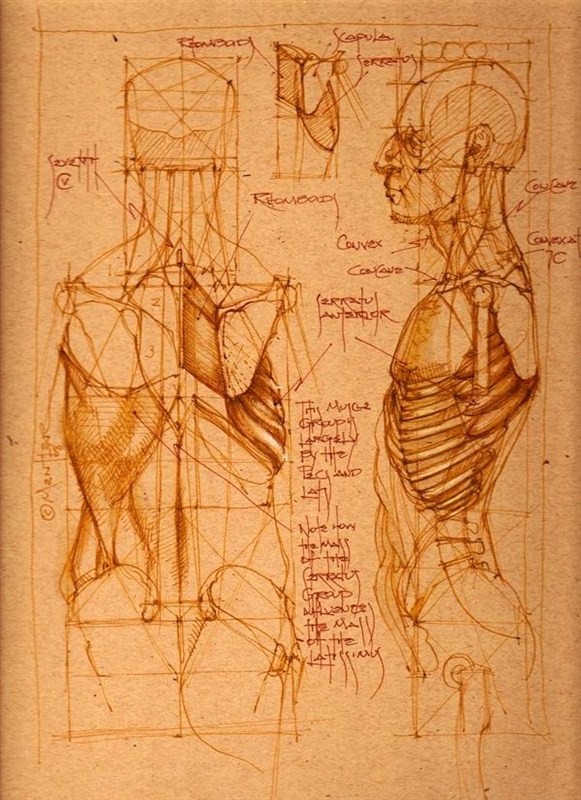 RHOMBOIDS
SCAPULA
SERRATUS
SEVENTH
C
RHOMBOIDS
CONCAVE
CONVEX
CONCAVE
7C
2
3
SERRATUS
ANTERIOR
THIS MUSCLE
GROUP IS
LARGELY
BY THE
PECS AND
LATS
NOTE HOW
THE MASS
OF THE
SERRATUS
GROUP
INFLUENCES
THE MASS
OF THE
LATISSIMUS